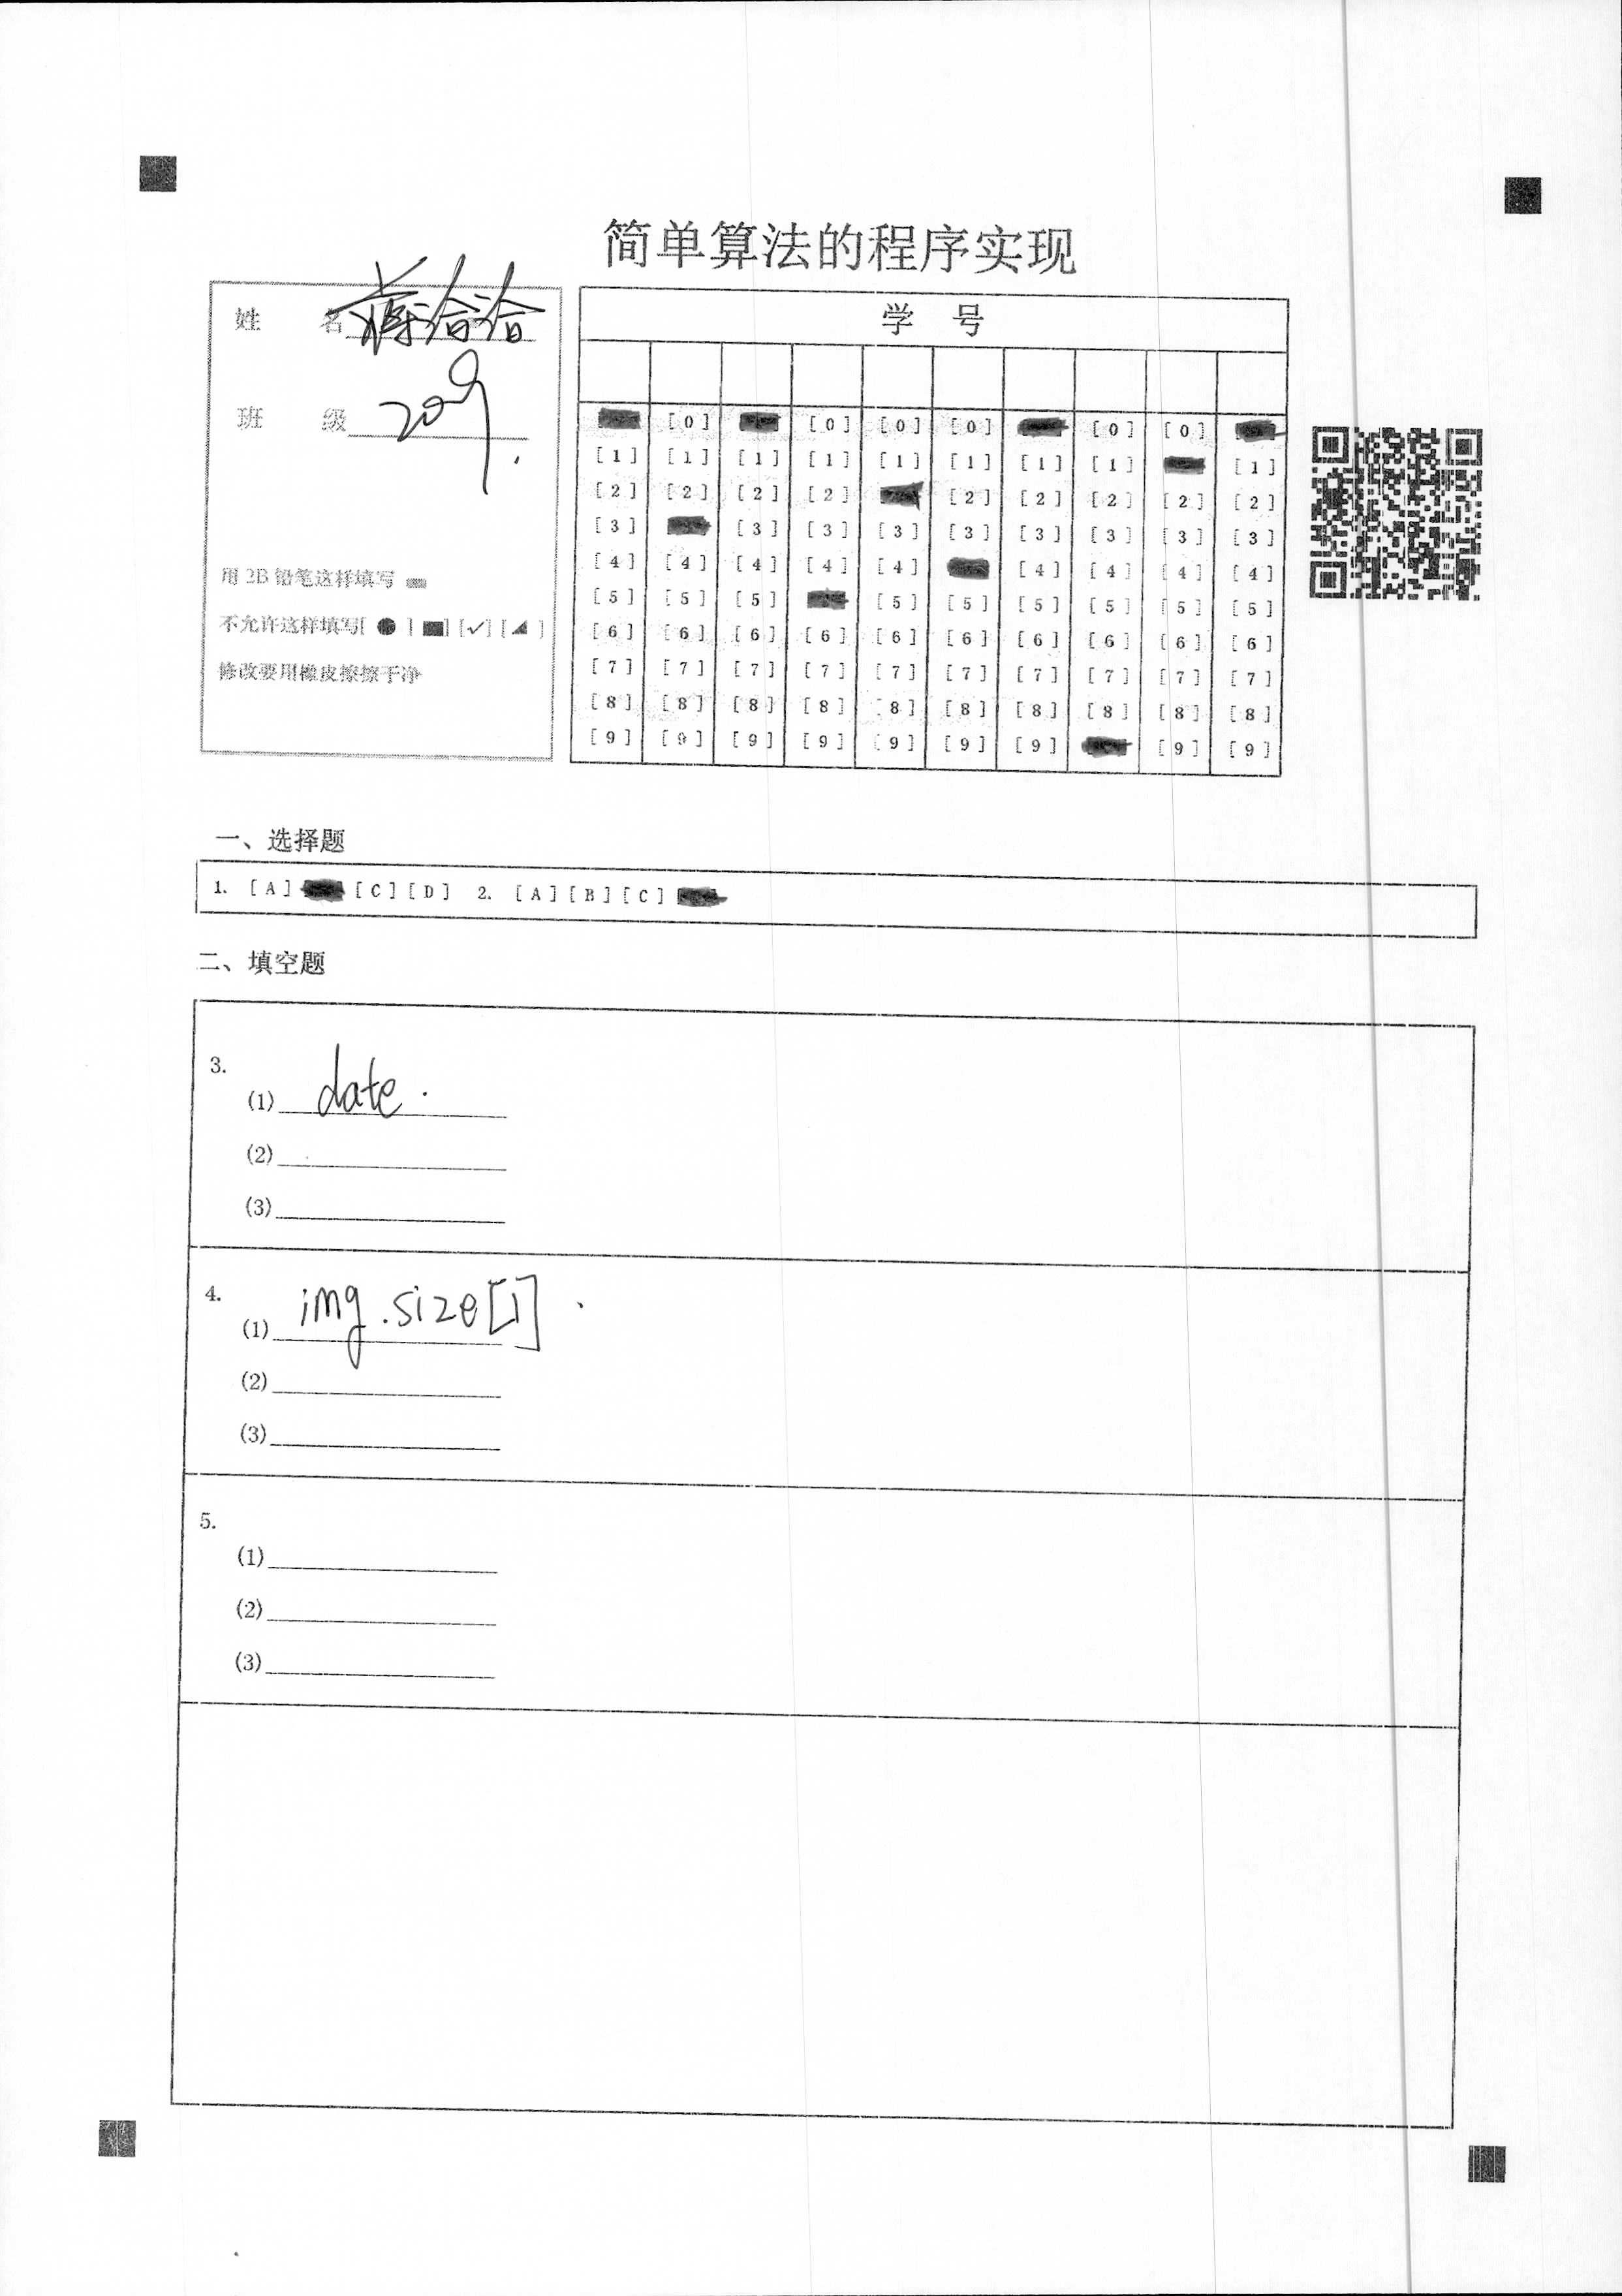 简单算法的程序实现
姓 名 蒋洽洽
班 级 209
用 2B 铅笔这样填写
不允许这样填写[ ● ] [■] [✓] [◢ ]
修改要用橡皮擦擦干净
学 号
[0] [0] [0] [0] [0] [0]
[1] [1] [1] [1] [1] [1] [1] [1] [1]
[2] [2] [2] [2] [2] [2] [2] [2] [2]
[3] [3] [3] [3] [3] [3] [3] [3] [3]
[4] [4] [4] [4] [4] [4] [4] [4] [4]
[5] [5] [5] [5] [5] [5] [5] [5] [5]
[6] [6] [6] [6] [6] [6] [6] [6] [6] [6]
[7] [7] [7] [7] [7] [7] [7] [7] [7] [7]
[8] [8] [8] [8] [8] [8] [8] [8] [8] [8]
[9] [9] [9] [9] [9] [9] [9] [9] [9]
一、选择题
1. [A] [C] [D] 2. [A] [B] [C]
二、填空题
3.
(1) date.
(2)
(3)
4.
(1) img.size[1]
(2)
(3)
5.
(1)
(2)
(3)